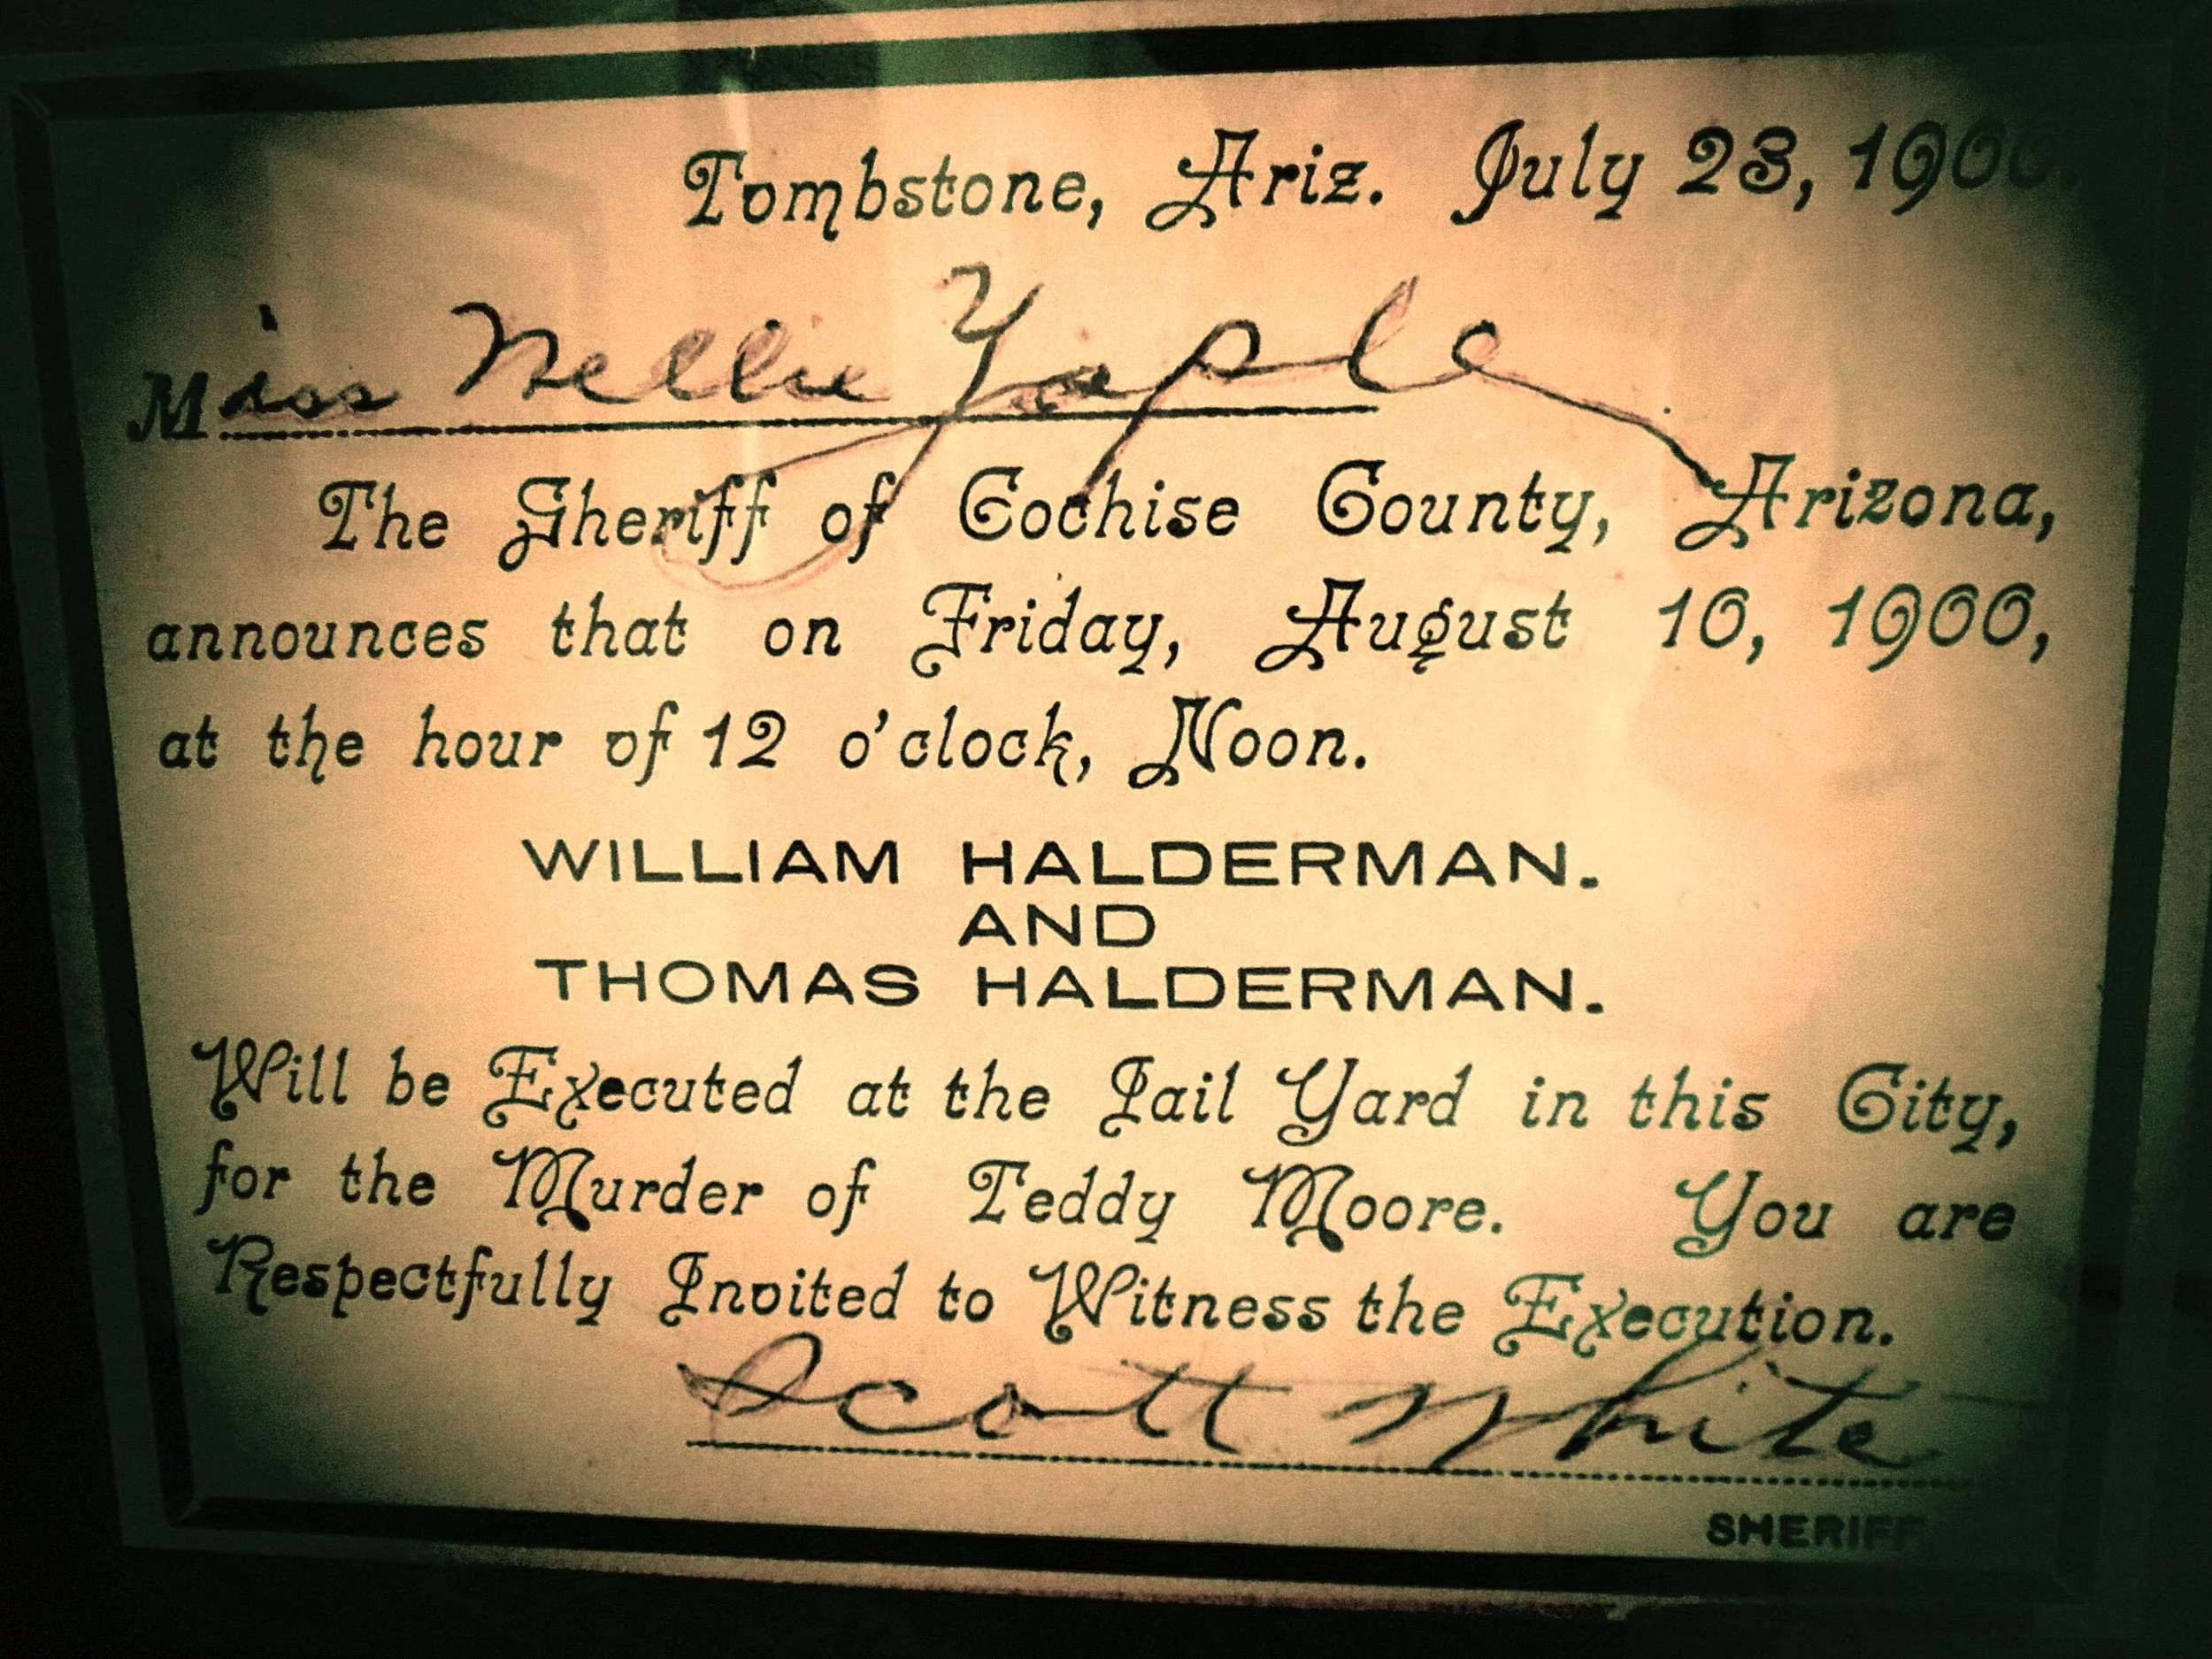 Tombstone, Ariz. July 23, 1900.
Miss Nellie Yaple
The Sheriff of Cochise County, Arizona,
announces that on Friday, August 10, 1900,
at the hour of 12 o'clock, Noon.
WILLIAM HALDERMAN.
AND
THOMAS HALDERMAN.
Will be Executed at the Jail Yard in this City,
for the Murder of Teddy Moore. You are
Respectfully Invited to Witness the Execution.
Scott White
SHERIFF